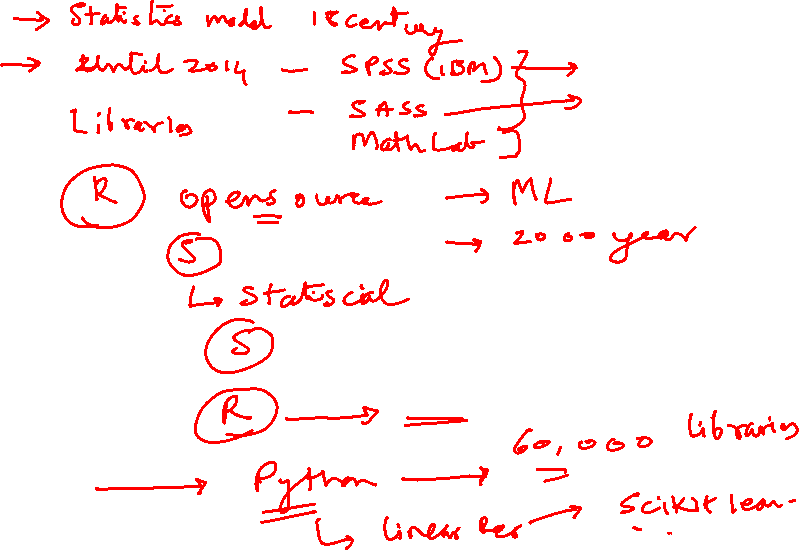 → Statistics model 18 century
→ Until 2014 - SPSS (IBM) →
Libraries - SASS →
Math Lab
R opensource → ML
→ 2000 year
S
↳ Statiscial
S
R →
→ Python → 60,000 libraries
↳ linear Reg → Scikit lear